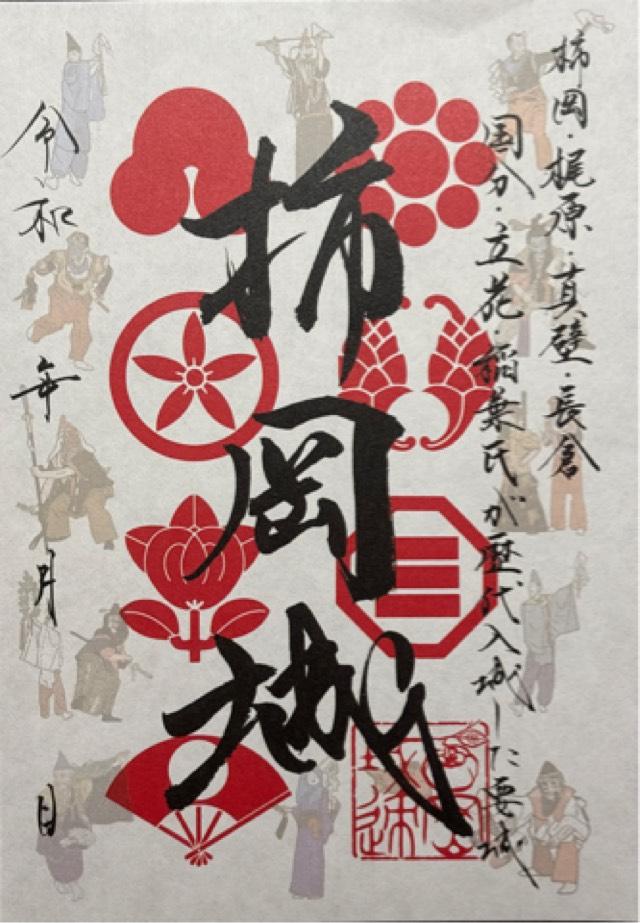 柿岡・梶原・真壁・長倉
国分・立花・稲葉氏が歴代入城した要城
柿岡城
令和 年 月 日